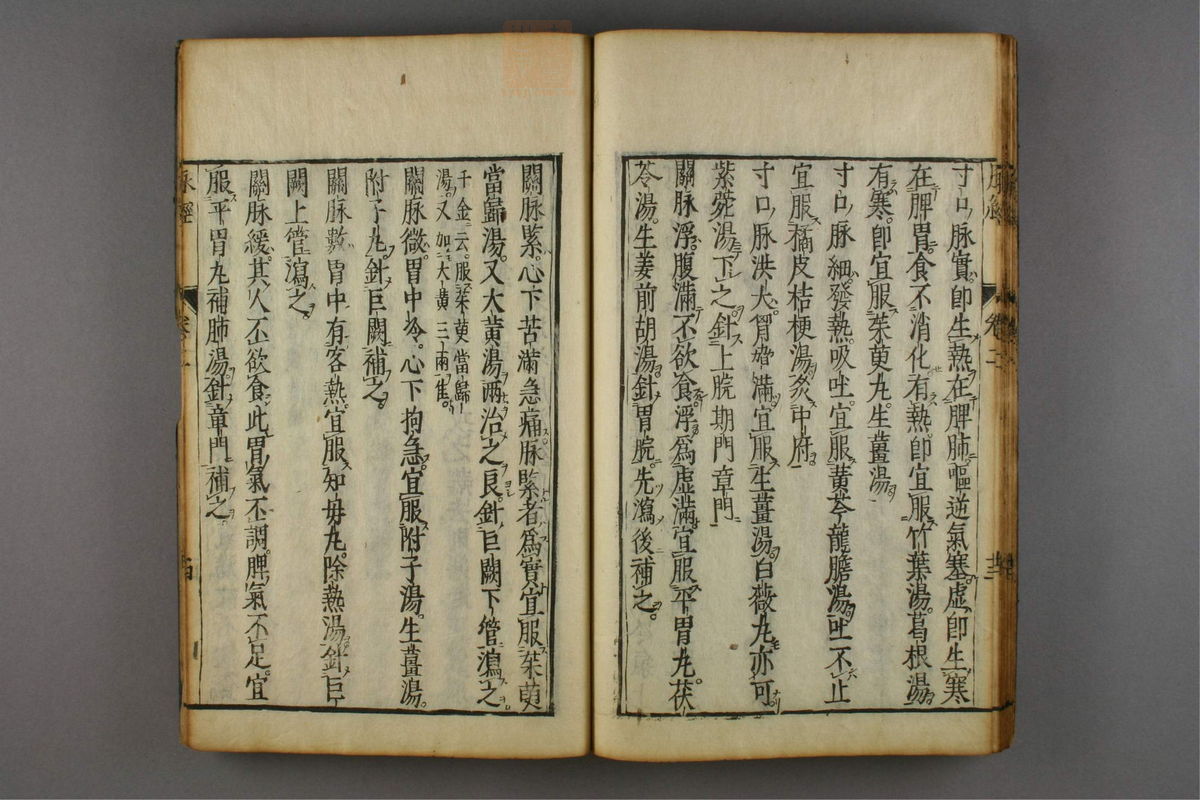 寸口脉實。即生熱在脾肺。嘔逆氣塞。虛即生寒
在脾胃。食不消化有熱。即宜服竹葉湯。葛根湯
有寒。即宜服茱萸丸。生薑湯
寸口脉細。發熱吸吐。宜服黄芩龍膽湯。吐不止
宜服橘皮桔梗湯。灸中府
寸口脉洪大。胷脅滿。宜服生薑湯。白薇丸亦可
紫菀湯下之針上脘期門章門
關脉浮。腹滿不欲食。浮爲虛滿。宜服平胃丸。茯
苓湯。生姜前胡湯。針胃脘。先瀉後補之。
關脉緊。心下苦滿急痛。脉緊者爲實。宜服茱萸
當歸湯。又大黄湯兩治之良。針巨闕下管瀉之
千金云。服茱萸當歸
湯。又加大黄三兩隹。
關脉微。胃中冷。心下拘急。宜服附子湯。生薑湯。
附子丸。針巨闕補之。
關脉數胃中有客熱。宜服知母丸。除熱湯。針巨
闕上管瀉之。
關脉緩。其人不欲食。此胃氣不調。脾氣不足。宜
服平胃丸補肺湯。針章門補之。
脉經